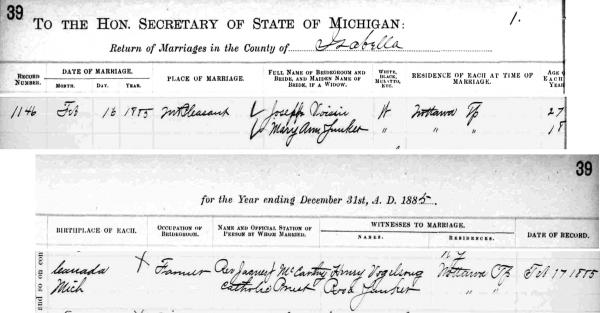 39
TO THE HON. SECRETARY OF STATE OF MICHIGAN:
1.
Return of Marriages in the County of Isabella
RECORD NUMBER.
DATE OF MARRIAGE.
MONTH. DAY. YEAR.
PLACE OF MARRIAGE.
FULL NAME OF BRIDEGROOM AND BRIDE, AND MAIDEN NAME OF BRIDE, IF A WIDOW.
WHITE, BLACK, MULATTO, ETC.
RESIDENCE OF EACH AT TIME OF MARRIAGE.
AGE O
EACH
YEAR
1146 Feb 16 1885 Mt Pleasant Joseph Voisin W Nottawa Tp 27
Mary Ann Junker " " " 18
39
for the Year ending December 31st, A. D. 1885.
BIRTHPLACE OF EACH.
OCCUPATION OF BRIDEGROOM.
NAME AND OFFICIAL STATION OF PERSON BY WHOM MARRIED.
WITNESSES TO MARRIAGE.
NAMES. RESIDENCES.
DATE OF RECORD.
and so on con
Canada X Farmer Rev McCarthy Henry Vogelsong Nottawa Tp Feb 17 1885
Mich Catholic Priest Rosa Junker " "